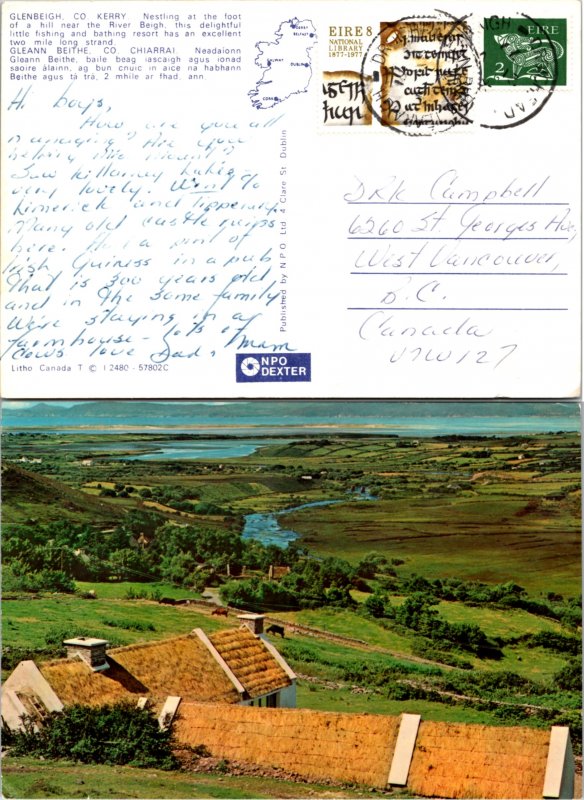 GLENBEIGH, CO. KERRY Nestling at the foot
of a hill near the River Beigh, this delightful
little fishing and bathing resort has an excellent
two mile long strand.
GLEANN BEITHE, CO. CHIARRAI. Neadaionn
Gleann Beithe, baile beag iascaigh agus ionad
saoire álainn, ag bun cnuic in aice na habhann
Beithe agus tá trá, 2 mhile ar fhad, ann.
Hi boys,
How are you all
managing? Are you
helping
Saw Killarney Lakes
very lovely. Went to
Limerick and Tipperary
Many old castle
here. Had a pint of
Irish Guiness in a pub
That is 300 years old
and in the same family
We're staying in a
farmhouse - lots of
cows love Dad & Mam
Litho Canada T © I 2480 - 57802C
Published by N P O Ltd 4 Clare St Dublin
NPO
DEXTER
BELFAST
GALWAY
DUBLIN
CORK
EIRE 8
NATIONAL
LIBRARY
1877-1977
EIRE
2
D R K Campbell
6260 St. Georges Ave,
West Vancouver,
B.C.
Canada